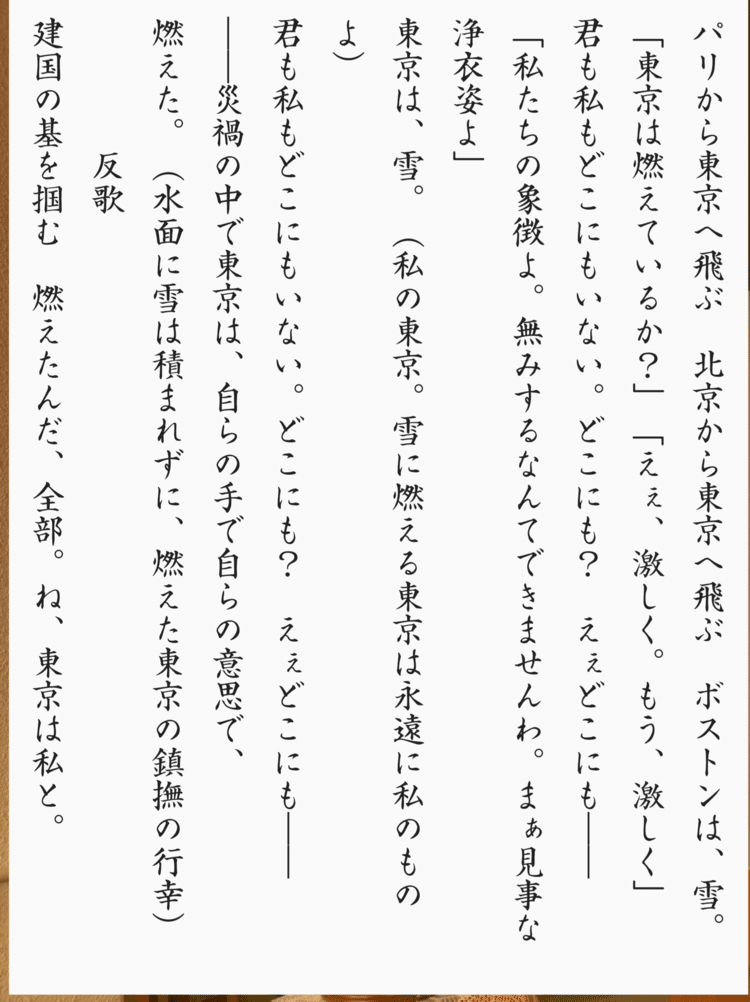 パリから東京へ飛ぶ　北京から東京へ飛ぶ　ボストンは、雪。
「東京は燃えているか？」「えぇ、激しく。もう、激しく」
君も私もどこにもいない。どこにも？　えぇどこにも――
「私たちの象徴よ。無みするなんてできませんわ。まぁ見事な
浄衣姿よ」
東京は、雪。　（私の東京。雪に燃える東京は永遠に私のもの
よ）
君も私もどこにもいない。どこにも？　えぇどこにも――
――災禍の中で東京は、自らの手で自らの意思で、
燃えた。　（水面に雪は積まれずに、燃えた東京の鎮撫の行幸）
反歌
建国の基を掴む　燃えたんだ、全部。ね、東京は私と。